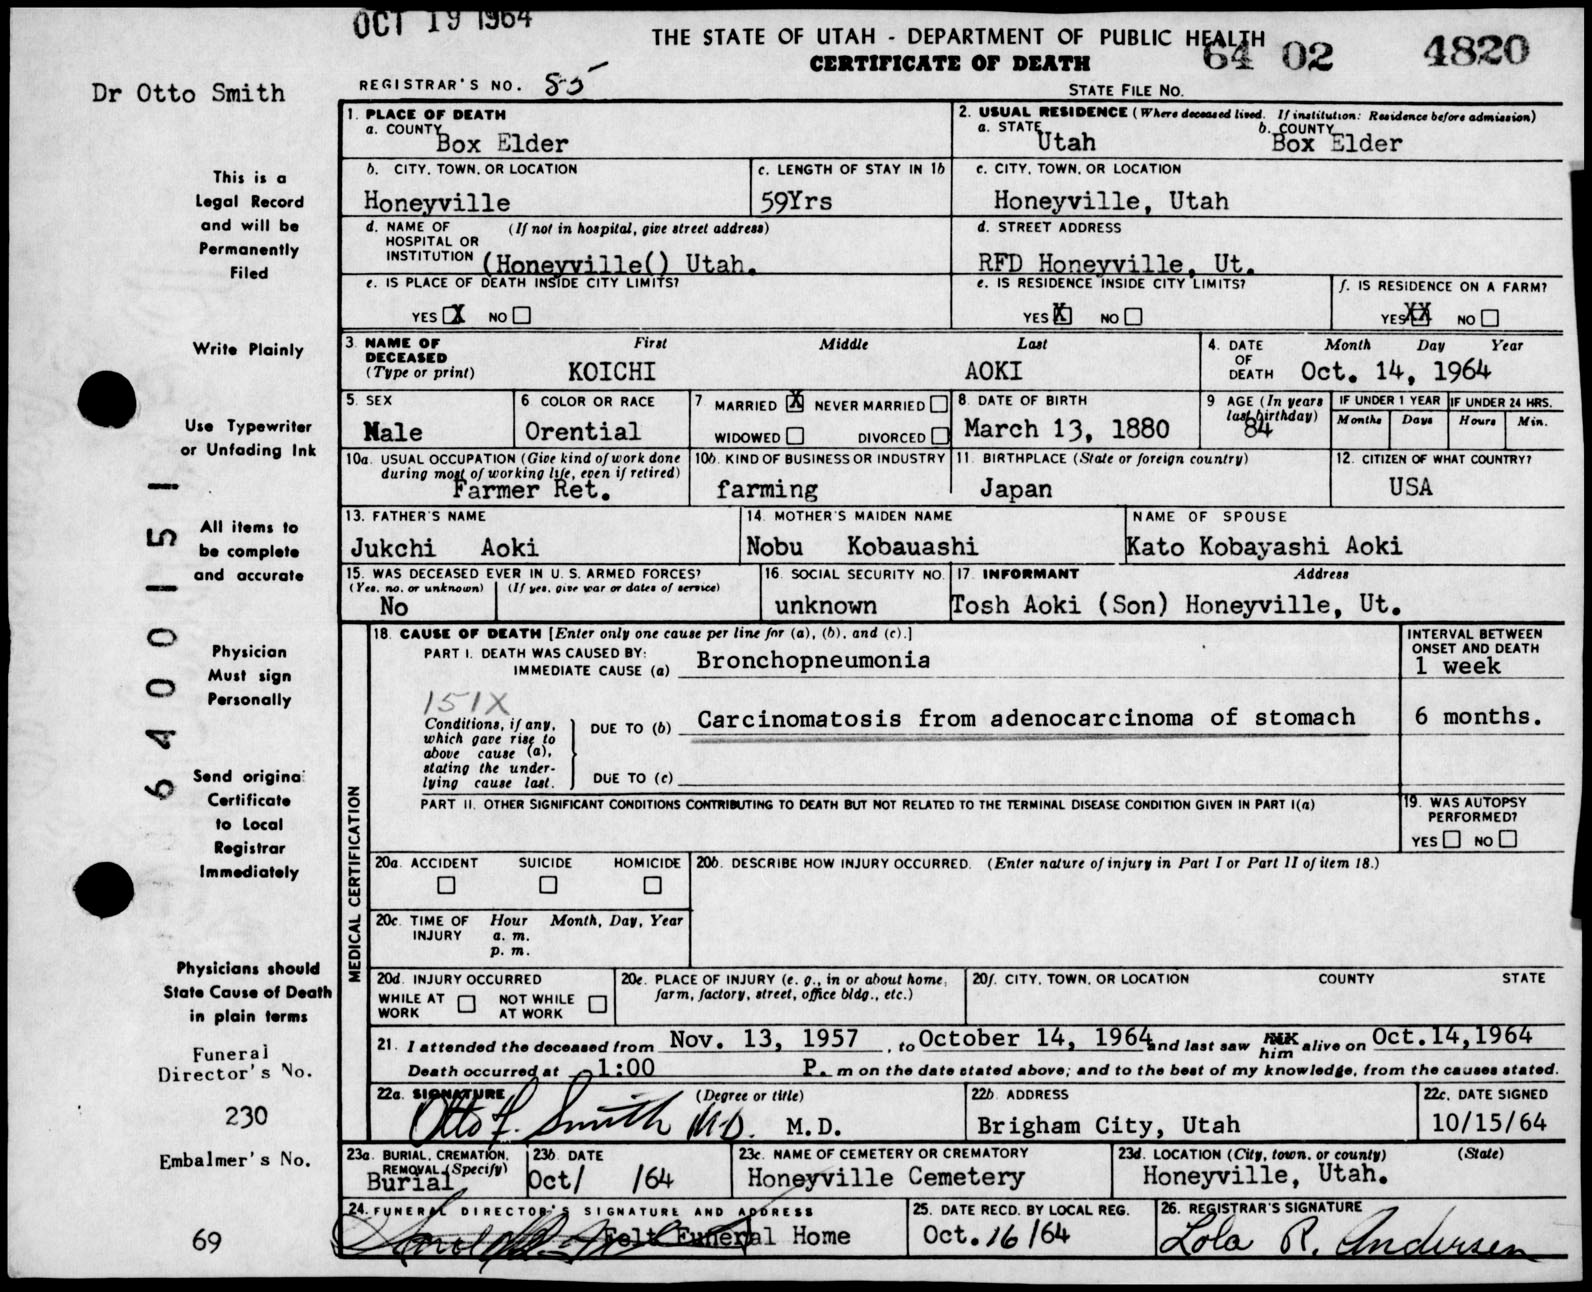 OCT 19 1964
THE STATE OF UTAH - DEPARTMENT OF PUBLIC HEALTH
CERTIFICATE OF DEATH
64 02 4820
REGISTRAR'S NO. 85
STATE FILE NO.
Dr Otto Smith
This is a
Legal Record
and will be
Permanently
Filed
Write Plainly
Use Typewriter
or Unfading Ink
All items to
be complete
and accurate
Physician
Must sign
Personally
Send original
Certificate
to Local
Registrar
Immediately
Physicians should
State Cause of Death
in plain terms
Funeral
Director's No.
230
Embalmer's No.
69
6400151
1. PLACE OF DEATH
a. COUNTY
Box Elder
2. USUAL RESIDENCE (Where deceased lived. If institution: Residence before admission)
a. STATE b. COUNTY
Utah Box Elder
b. CITY, TOWN, OR LOCATION
Honeyville
c. LENGTH OF STAY IN 1b
59Yrs
c. CITY, TOWN, OR LOCATION
Honeyville, Utah
d. NAME OF (If not in hospital, give street address)
HOSPITAL OR
INSTITUTION (Honeyville() Utah.
d. STREET ADDRESS
RFD Honeyville, Ut.
e. IS PLACE OF DEATH INSIDE CITY LIMITS?
YES X NO
e. IS RESIDENCE INSIDE CITY LIMITS?
YES X NO
f. IS RESIDENCE ON A FARM?
YES XX NO
3. NAME OF First Middle Last
DECEASED
(Type or print) KOICHI AOKI
4. DATE Month Day Year
OF
DEATH Oct. 14, 1964
5. SEX
Male
6 COLOR OR RACE
Orential
7 MARRIED X NEVER MARRIED
WIDOWED DIVORCED
8. DATE OF BIRTH
March 13, 1880
9 AGE (In years
last birthday)
84
IF UNDER 1 YEAR IF UNDER 24 HRS.
Months Days Hours Min.
10a. USUAL OCCUPATION (Give kind of work done
during most of working life, even if retired)
Farmer Ret.
10b. KIND OF BUSINESS OR INDUSTRY
farming
11. BIRTHPLACE (State or foreign country)
Japan
12. CITIZEN OF WHAT COUNTRY?
USA
13. FATHER'S NAME
Jukchi Aoki
14. MOTHER'S MAIDEN NAME
Nobu Kobauashi
NAME OF SPOUSE
Kato Kobayashi Aoki
15. WAS DECEASED EVER IN U. S. ARMED FORCES?
(Yes, no, or unknown) (If yes, give war or dates of service)
No
16. SOCIAL SECURITY NO.
unknown
17. INFORMANT Address
Tosh Aoki (Son) Honeyville, Ut.
MEDICAL CERTIFICATION
18. CAUSE OF DEATH [Enter only one cause per line for (a), (b), and (c).]
PART I. DEATH WAS CAUSED BY:
IMMEDIATE CAUSE (a) Bronchopneumonia
INTERVAL BETWEEN
ONSET AND DEATH
1 week
151X
Conditions, if any,
which gave rise to
above cause (a),
stating the under-
lying cause last.
DUE TO (b) Carcinomatosis from adenocarcinoma of stomach 6 months.
DUE TO (c)
PART II. OTHER SIGNIFICANT CONDITIONS CONTRIBUTING TO DEATH BUT NOT RELATED TO THE TERMINAL DISEASE CONDITION GIVEN IN PART I(a)
19. WAS AUTOPSY
PERFORMED?
YES NO
20a. ACCIDENT SUICIDE HOMICIDE
20b. DESCRIBE HOW INJURY OCCURRED. (Enter nature of injury in Part I or Part II of item 18.)
20c. TIME OF Hour Month, Day, Year
INJURY a. m.
p. m.
20d. INJURY OCCURRED
WHILE AT NOT WHILE
WORK AT WORK
20e. PLACE OF INJURY (e. g., in or about home,
farm, factory, street, office bldg., etc.)
20f. CITY, TOWN, OR LOCATION COUNTY STATE
21. I attended the deceased from Nov. 13, 1957, to October 14, 1964 and last saw him alive on Oct.14,1964
Death occurred at 1:00 P. m on the date stated above; and to the best of my knowledge, from the causes stated.
22a. SIGNATURE (Degree or title)
Otto F. Smith M.D. M.D.
22b. ADDRESS
Brigham City, Utah
22c. DATE SIGNED
10/15/64
23a. BURIAL, CREMATION,
REMOVAL (Specify)
Burial
23b. DATE
Oct/ /64
23c. NAME OF CEMETERY OR CREMATORY
Honeyville Cemetery
23d. LOCATION (City, town, or county) (State)
Honeyville, Utah.
24. FUNERAL DIRECTOR'S SIGNATURE AND ADDRESS
Felt Funeral Home
25. DATE RECD. BY LOCAL REG.
Oct. 16/64
26. REGISTRAR'S SIGNATURE
Lola R. Andersen